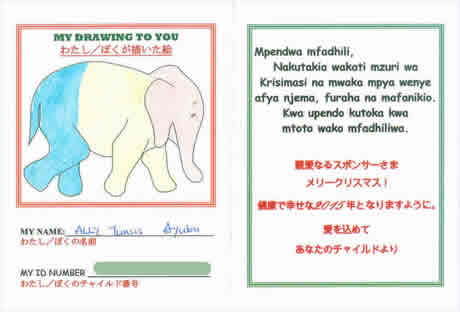 MY DRAWING TO YOU
わたし／ぼくが描いた絵
MY NAME:
わたし／ぼくの名前
MY ID NUMBER
わたし／ぼくのチャイルド番号
Mpendwa mfadhili,
Nakutakia wakati mzuri wa
Krisimasi na mwaka mpya wenye
afya njema, furaha na mafanikio.
Kwa upendo kutoka kwa
mtoto wako mfadhiliwa.
親愛なるスポンサーさま
メリークリスマス！
健康で幸せな2015年となりますように。
愛を込めて
あなたのチャイルドより